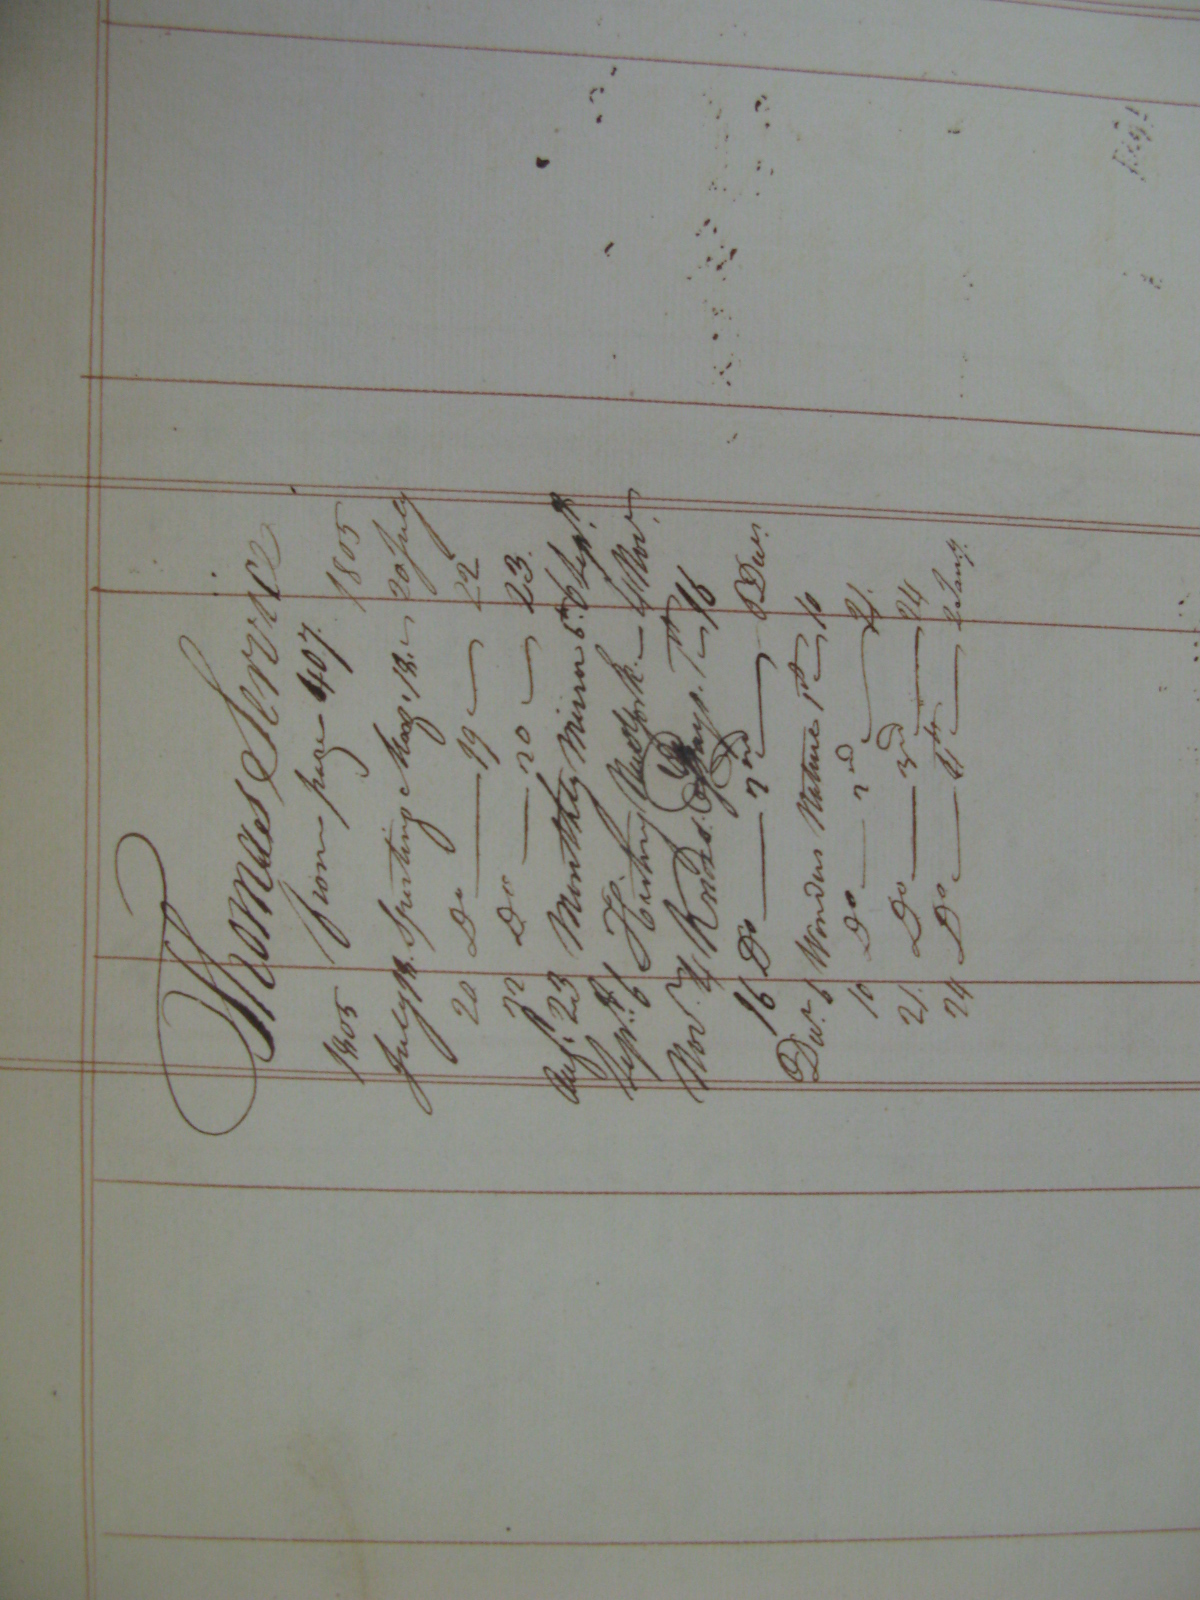 Thomas Service
1805 from page 407. 1805
July 18. Sporting Mag. 18. 20 July
20 Do 19 22
22 Do 20 23.
Aug. 23 Monthly Mirror 5th 6 Sepr.
Sepr. 6 History New York 4 Nov.
Nov. 4 Voyages 1st 16
16 Do 2nd 6 Decr.
Decr. 6 Wonders Nature 1st 10
10 Do 2nd 21.
21. Do 3rd 24
24 Do 4th 2 Jany.